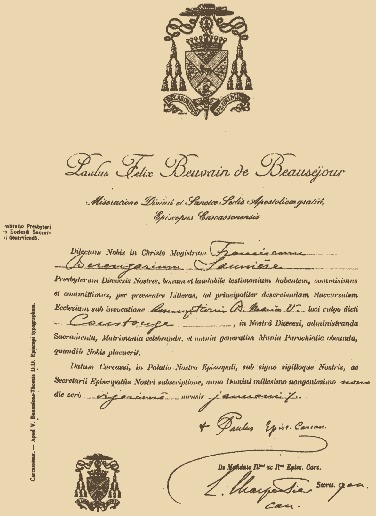 Paulus Felix Beuvain de Beauséjour
Miseratione Divinâ et Sanctæ Sedis Apostolicæ gratiâ,
Episcopus Carcassonensis
Dilectum Nobis in Christo Magistrum Franciscum
Berengarium Saunière
Presbyterum Diœcesis Nostræ, bonum et laudabile testimonium habentem, constituimus
et committimus, per præsentes Litteras, ad principaliter deserviendum Succursalem
Ecclesiam sub invocatione B. Mariæ V. loci vulgo dicti
Coustouge, in Nostrâ Diœcesi, administranda
Sacramenta, Matrimonia celebranda, et omnia generatim Munia Parochialia obeunda,
quamdiu Nobis placuerit.
Datum Carcassi, in Palatio Nostro Episcopali, sub signo sigilloque Nostris, ac
Secretarii Episcopatûs Nostri subscriptione, anno Domini millesimo nongentesimo nono
die verò vigesima mensis januarii
+ Paulus Episc. Carcass.
De Mandato Illmi ac Rmi Episc. Carc.
L. Charpentier
can.
Carcassone. — Apud V. Bonnafous-Thomas D.D. Episcopi typographum.